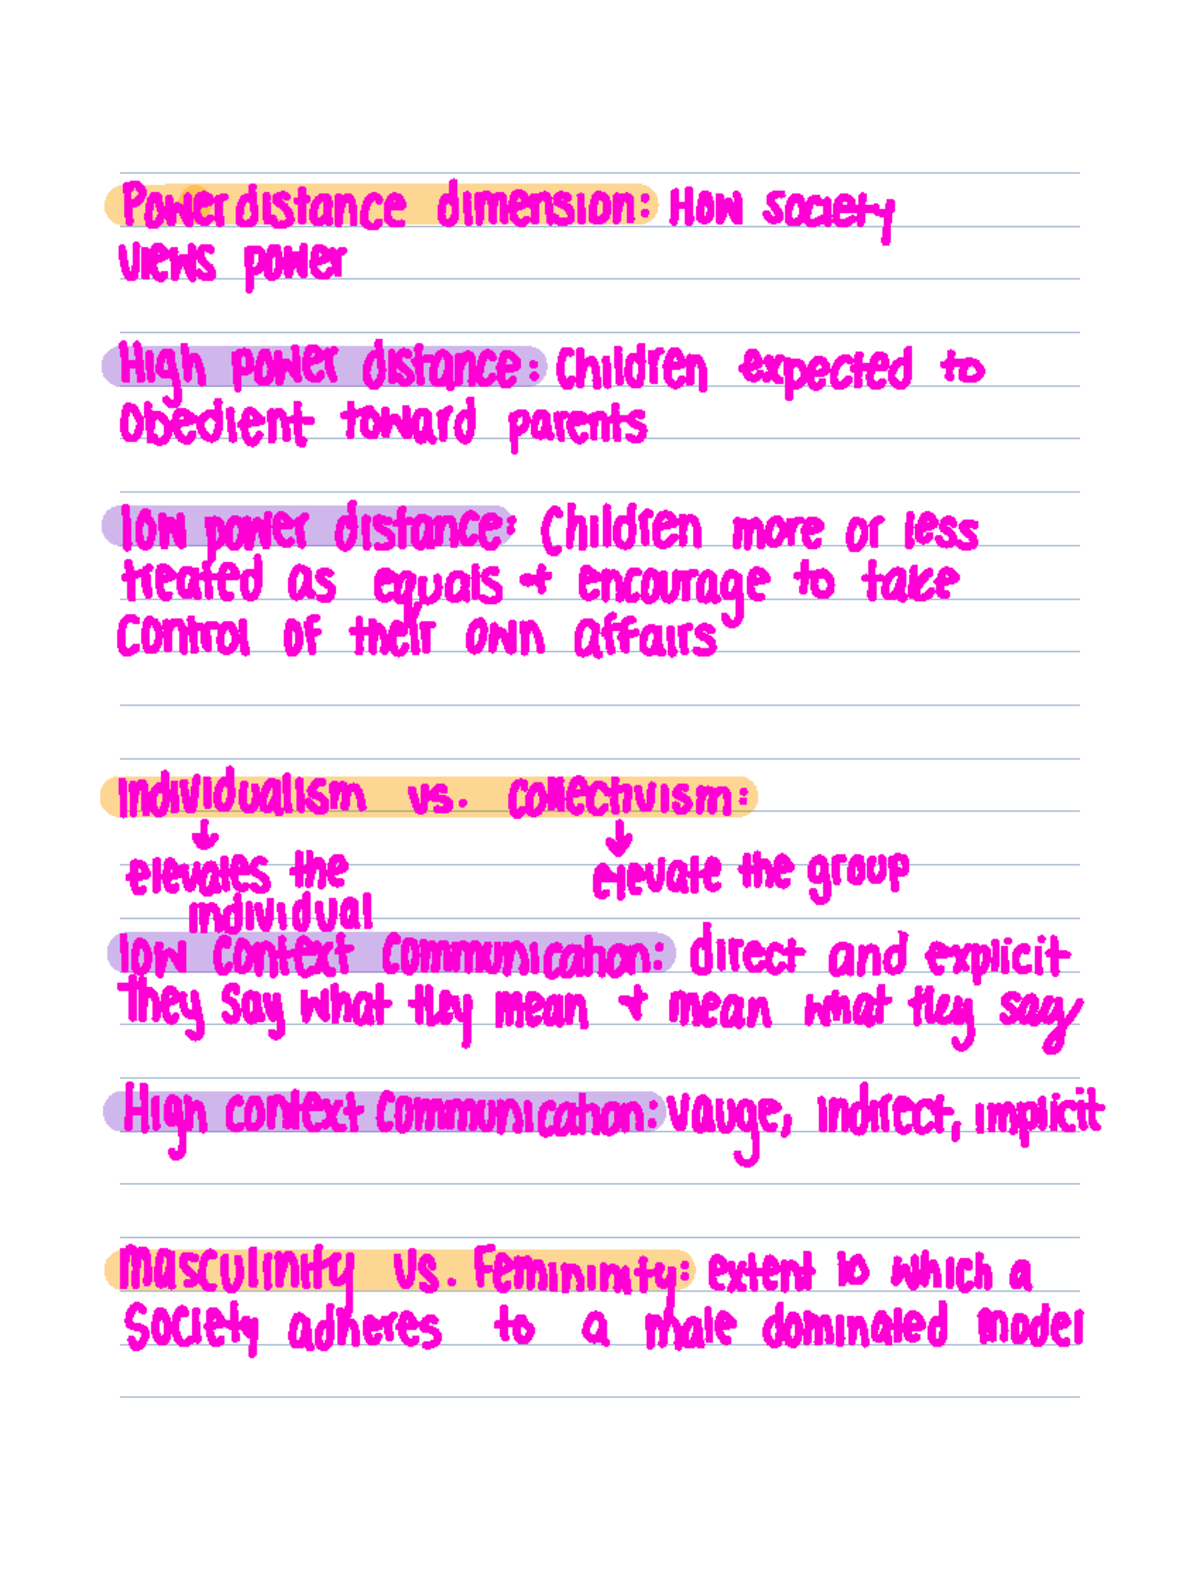 Power distance dimension: How society
views power
High power distance: Children expected to
obedient toward parents
low power distance: Children more or less
treated as equals + encourage to take
control of their own affairs
individualism vs. collectivism:
↓ ↓
elevates the elevate the group
individual
low context communication: direct and explicit
They say what they mean + mean what they say
High context communication: vauge, indirect, implicit
masculinity vs. Femininity: extent to which a
society adheres to a male dominated model